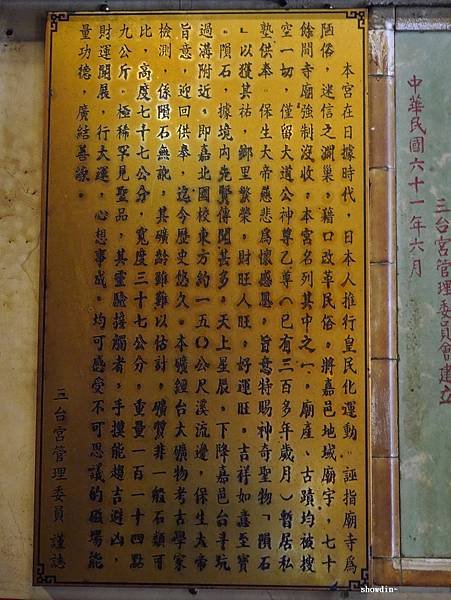 三台宮管理委員會建立
中華民國六十一年六月
本宮在日據時代,日本人推行皇民化運動,誣指廟寺為
陋俗,迷信之淵巢,藉口改革民俗,將嘉邑地域廟宇,七十
餘間寺廟強制沒收,本宮名列其中之一,廟產、古蹟均被搜
空一切,僅留大道公神尊乙尊(已有三百多年歲月)暫居私
塾供奉。保生大帝慈悲為懷感恩,旨意特賜神奇聖物「隕石
」以獲其祐,鄉里繁榮,財旺人旺,好運旺。吉祥如意至寶
。隕石,據境內先賢傳聞甚多。天上星辰,下降嘉邑台斗坑
過溝附近,即嘉北國校東方約一五〇公尺溪流邊,保生大帝
旨意,迎回供奉,迄今歷史悠久。本礦經台大礦物考古學家
檢測,係隕石無訛,其礦齡雖難以估計,礦質非一般石類可
比,高度七十七公分,寬度三十七公分,重量一百一十四點
九公斤。極稀罕見聖品,其靈驗接觸者,手摸能趨吉避凶,
財運開展,行大運,心想事成。均可感受不可思議的磁場能
量功德,廣結善緣。
三台宮管理委員 謹誌
showdin~